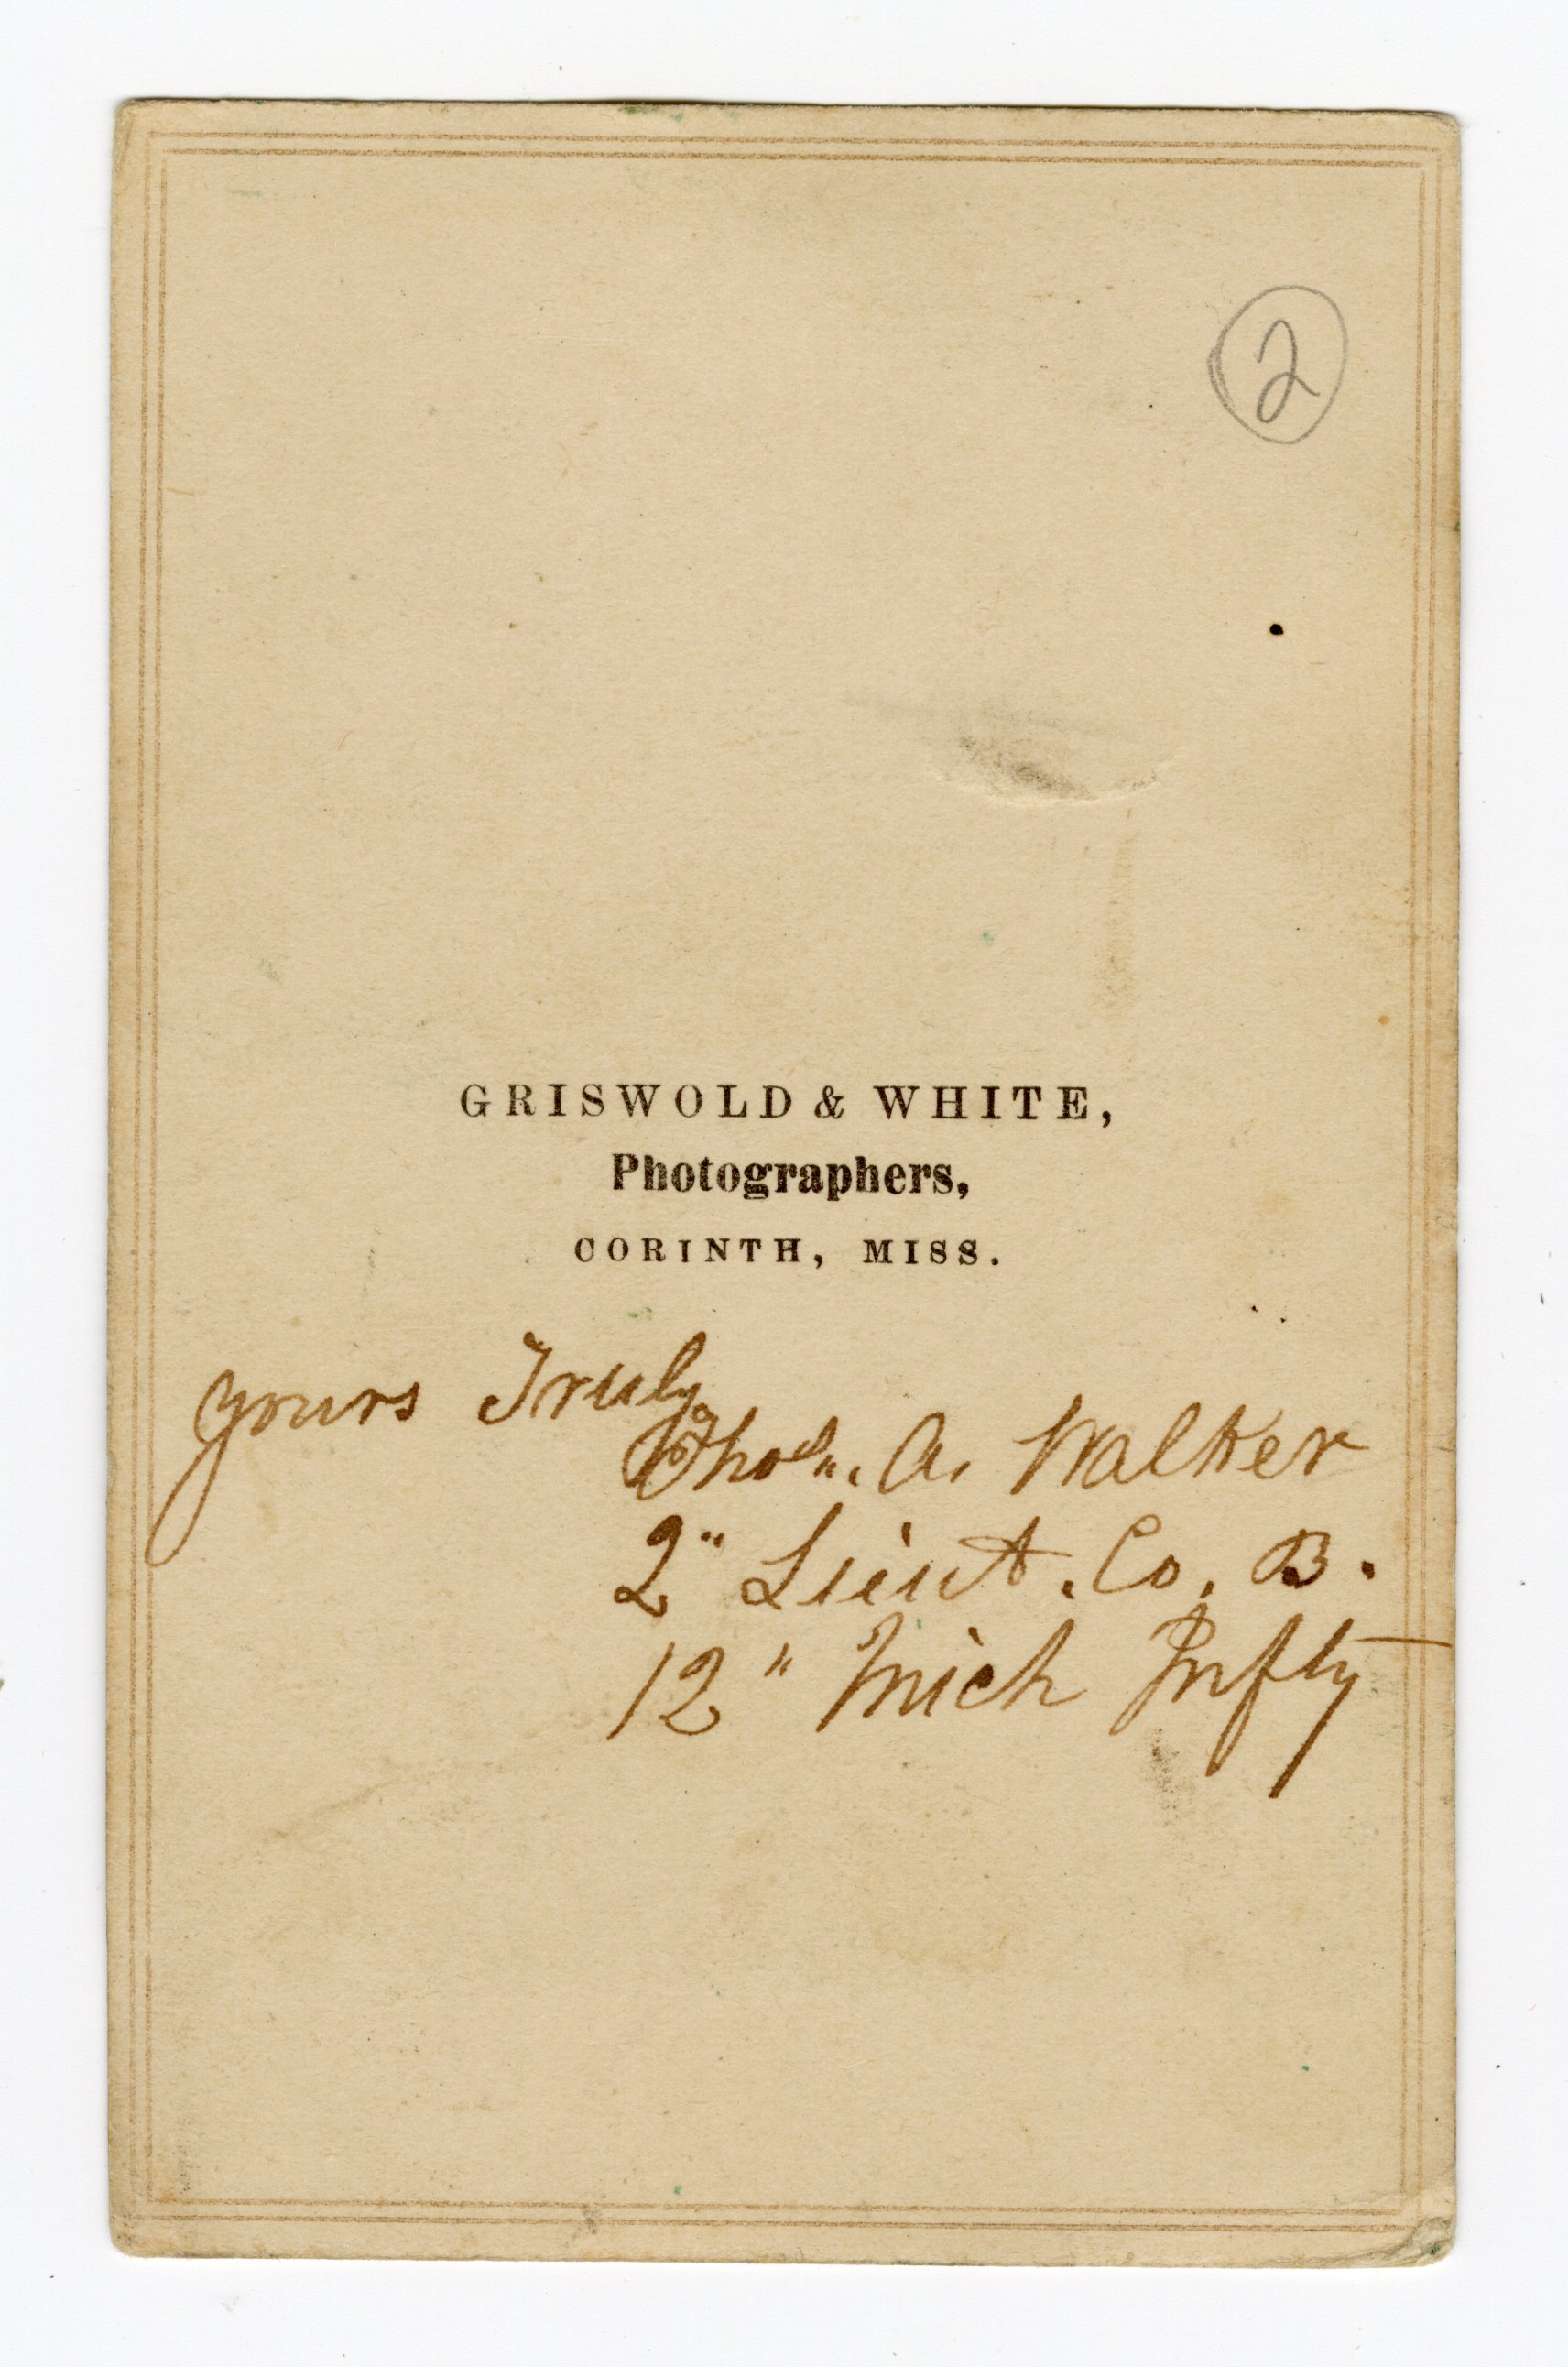 2
GRISWOLD & WHITE,
Photographers,
CORINTH, MISS.
Yours Truly
Thos". A. Walker
2" Lieut. Co. B.
12" Mich Infty